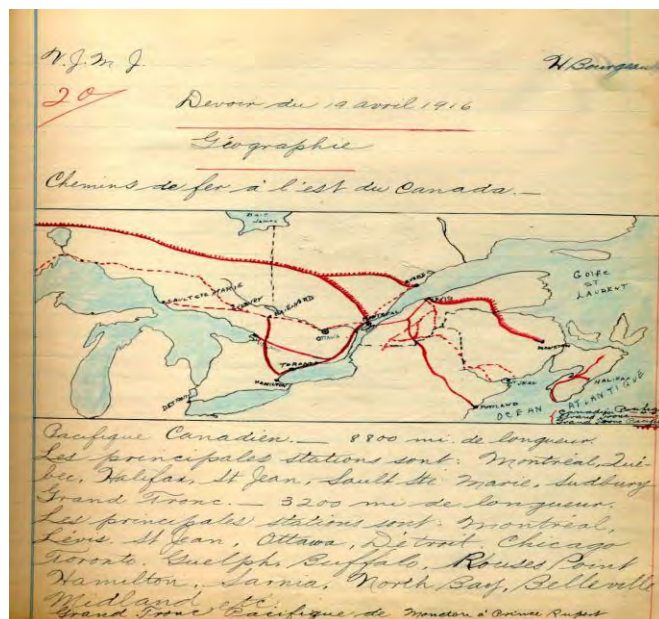 V. J. M. J.
H Bourgeau
20
Devoir du 19 avril 1916
Géographie
Chemins de fer à l'est du Canada. —
BAIE
JAMES
GOLFE
ST
LAURENT
SAULT STE MARIE
SUDBURY
NORTH BAY
OTTAWA
MONTREAL
QUEBEC
LEVIS
MONCTON
TORONTO
HAMILTON
DETROIT
ST JEAN
HALIFAX
PORTLAND
OCEAN
ATLANTIQUE
Canadien Pacifique
Grand Tronc
Pacifique Canadien. — 8800 mi. de longueur.
Les principales stations sont: Montréal, Qué-
bec, Halifax, St Jean, Sault Ste Marie, Sudbury
Grand Tronc. — 3200 mi de longueur.
Les principales stations sont: Montréal,
Lévis, St Jean, Ottawa, Détroit, Chicago
Toronto, Guelph, Buffalo, Rouses Point
Hamilton, Sarnia, North Bay, Belleville
Midland etc.
Grand Tronc Pacifique de Moncton à Prince Rupert